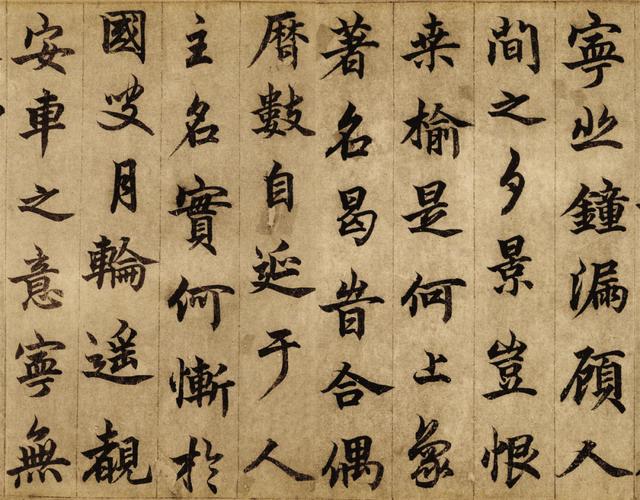 寧止鐘漏顧人
間之夕景豈恨
桒榆是何上象
著名曷昔合偶
暦數自延于人
主名實何慚於
國叟月輪遥覩
安車之意寧無